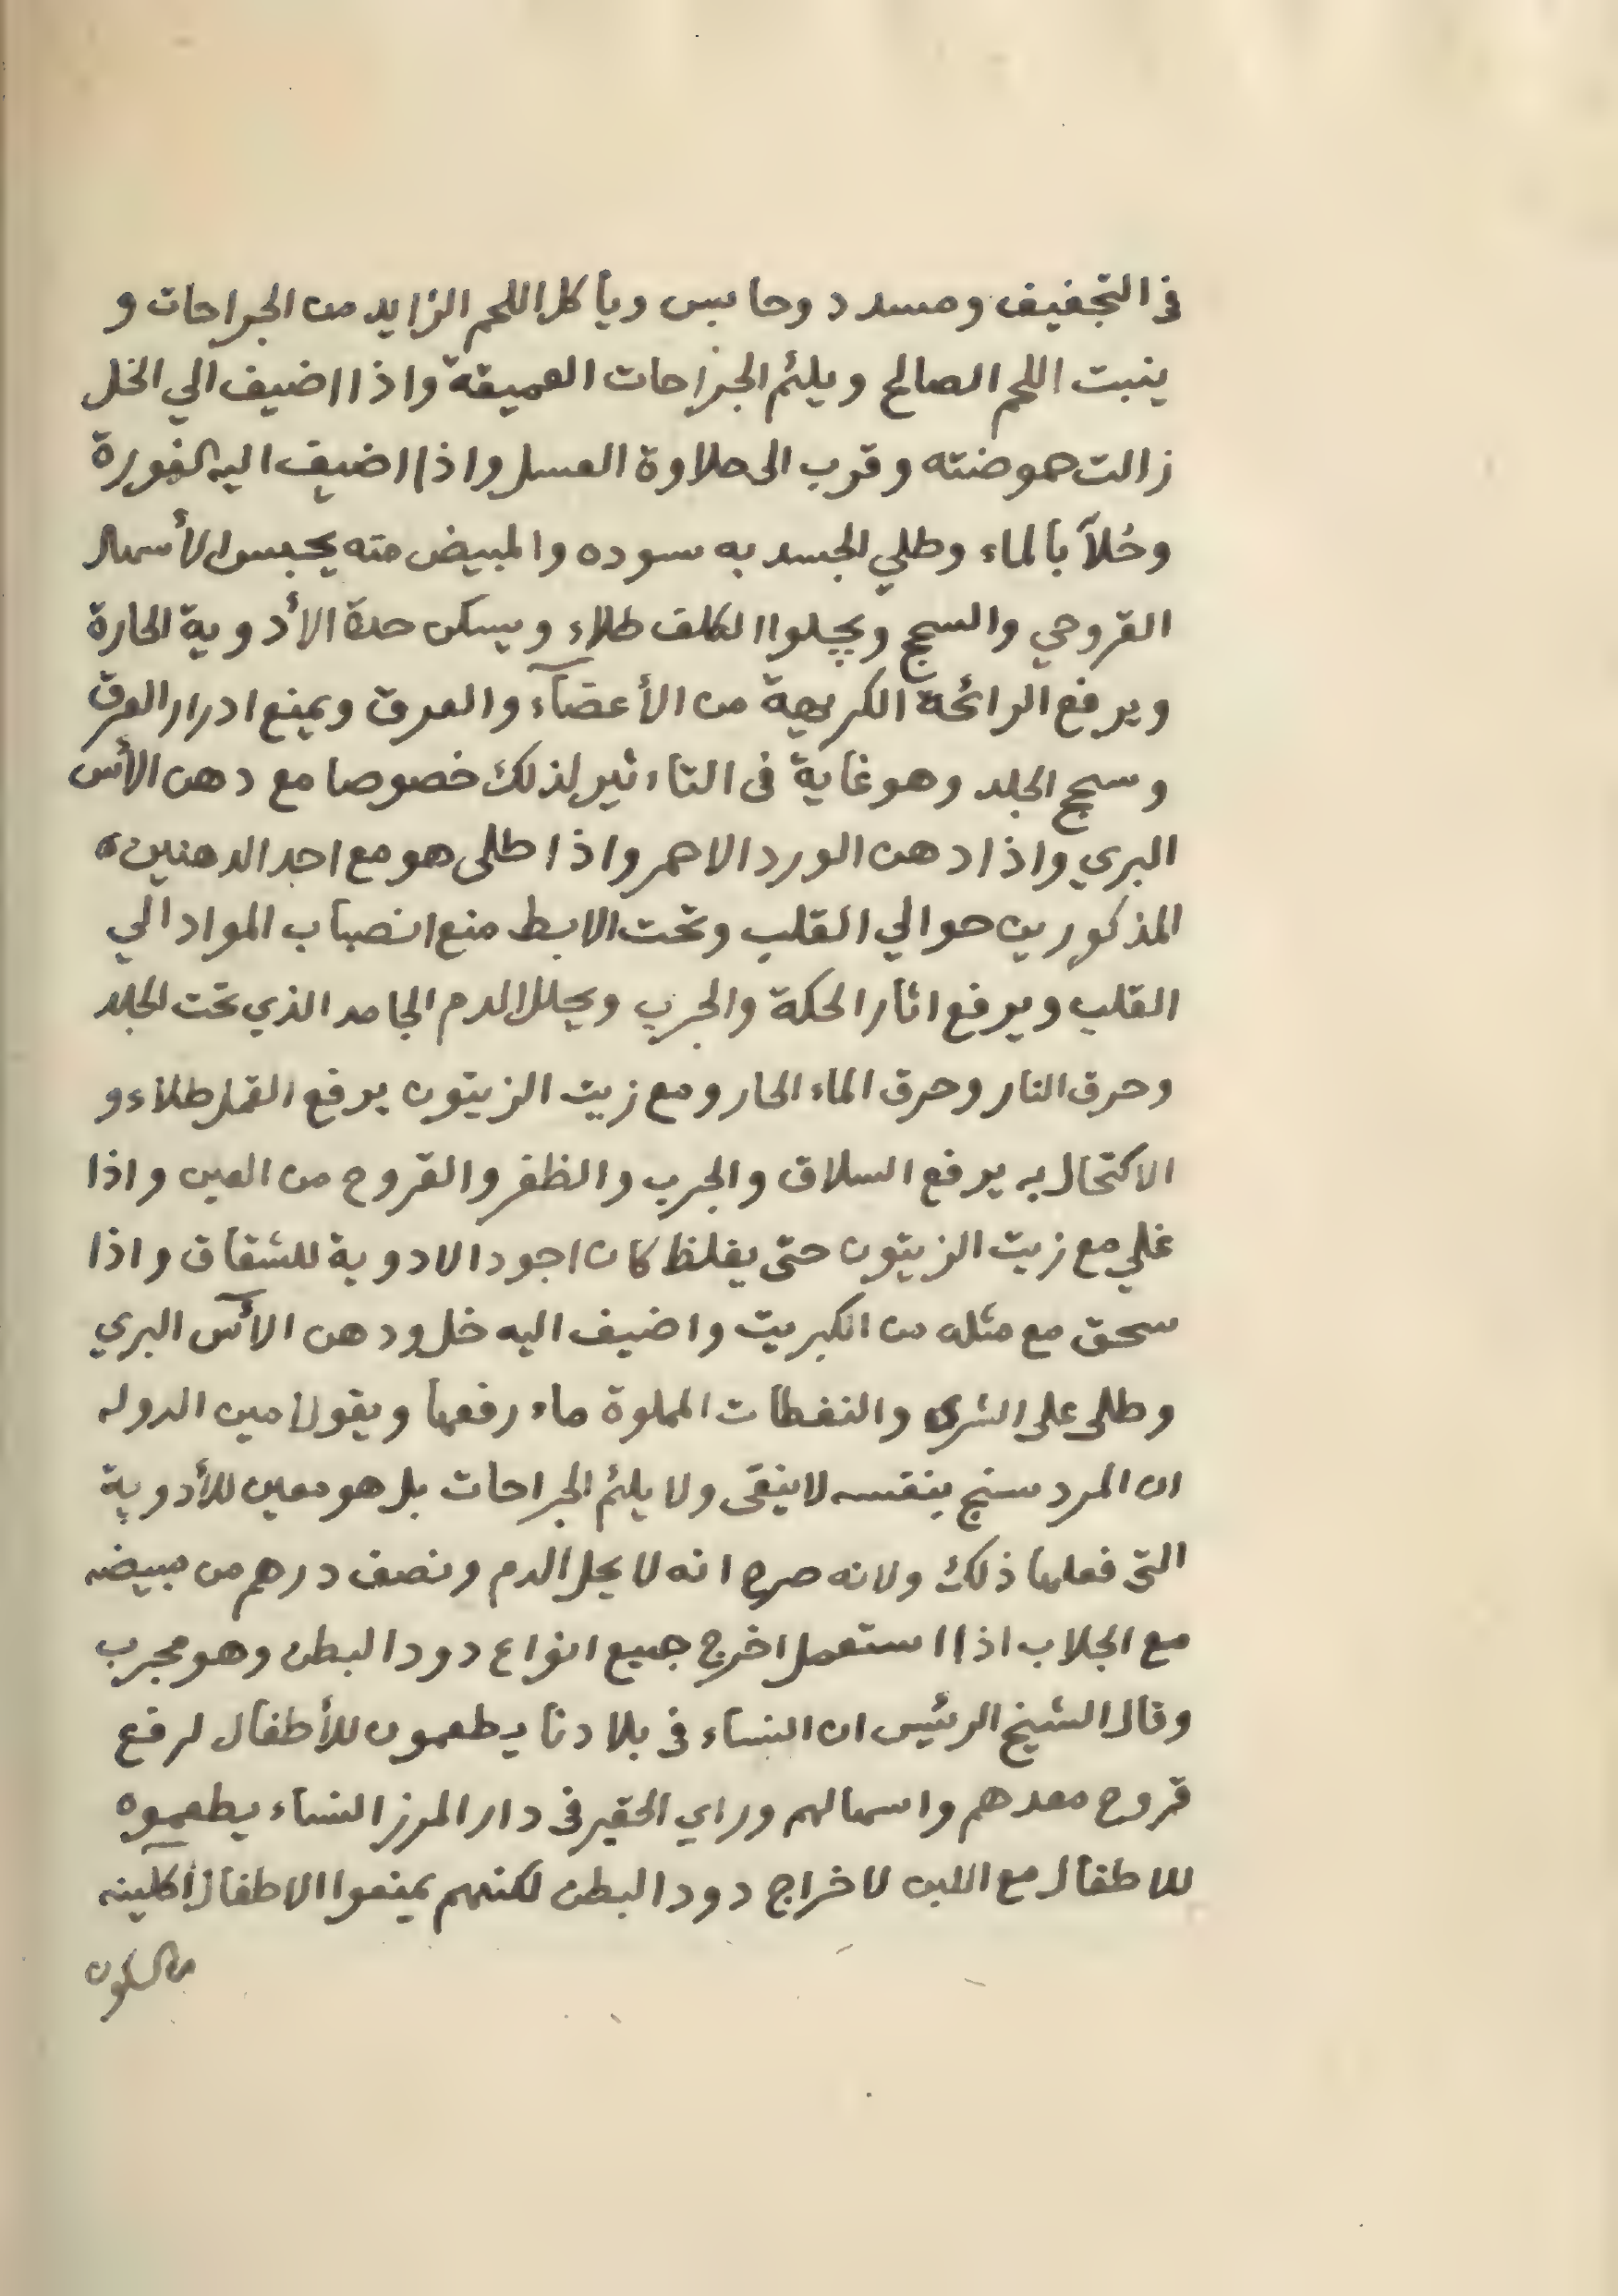 في التجفيف ومسدد وحابس ويأكل اللحم الزايد من الجراحات و
ينبت اللحم الصالح ويلئم الجراحات العميقة واذا اضيف الي الخل
زالت حموضته وقرب الى حلاوة العسل واذا اضيف اليه النورة
وحُلاّ بالماء وطلي الجسد به سوده والمبيض منه يحبس الأسهال
القروحي والسحج ويجلوا الكلف طلاء ويسكن حدة الأدوية الحارة
ويرفع الرائحة الكريهة من الأعضآء والعرق ويمنع ادرار العرق
وسحج الجلد وهو غاية في التاءثير لذلك خصوصا مع دهن الأس
البري واذا دهن الورد الاحمر واذا طلى هو مع احد الدهنين
المذكورين حوالي القلب وتحت الابط منع انصباب المواد الي
القلب ويرفع اثار الحكة والجرب ويحلل الدم الجامد الذي تحت الجلد
وحرق النار وحرق الماء الحار ومع زيت الزيتون يرفع القمل طلاء و
الاكتحال به يرفع السلاق والجرب والظفر والقروح من العين واذا
غلي مع زيت الزيتون حتى يغلظ كان اجود الادوية للشقاق واذا
سحق مع مثله من الكبريت واضيف اليه خل ودهن الآس البري
وطلى على الشرى والنفطات المملوة ماء رفعها ويقول امين الدوله
ان المردسنج بنفسه لا ينقى ولا يلئم الجراحات بل هو معين للأدوية
التى فعلها ذلك ولانه صرح انه لا يحل الدم ونصف درهم من مبيضه
مع الجلاب اذا استعمل اخرج جميع انواع دود البطن وهو مجرب
وقال الشيخ الرئيس ان النساء في بلادنا يطعمون للأطفال لرفع
قروح معدهم واسهالهم وراي الحقير في دار المرز النساء يطعموه
للاطفال مع اللبن لاخراج دود البطن لكنهم يمنعوا الاطفال